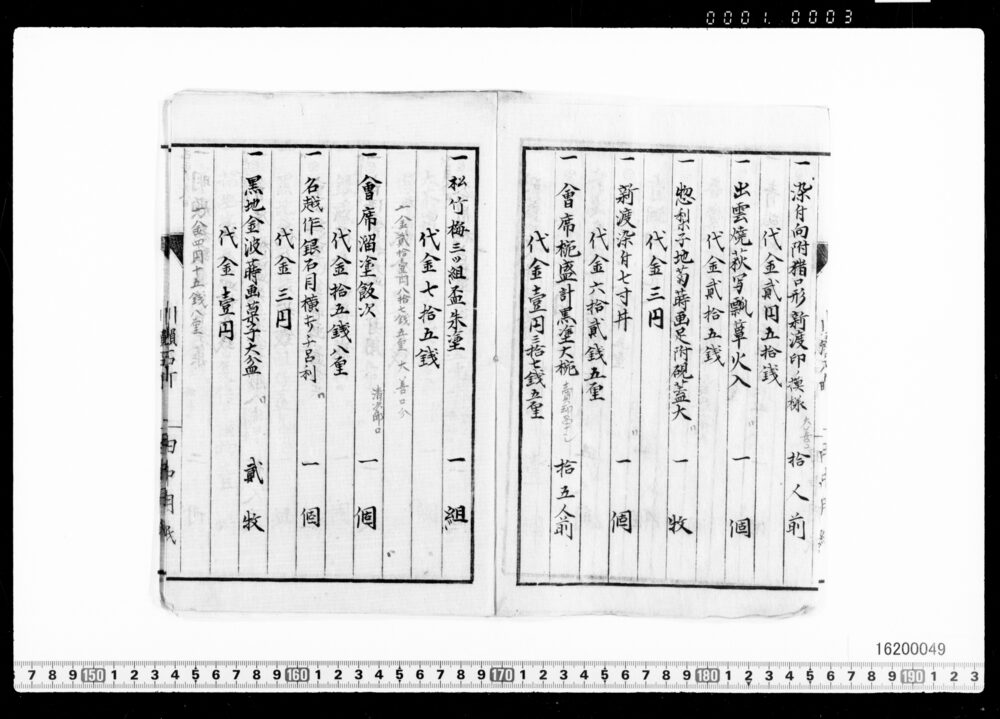 0001.0003
一 染付向附猪口形新渡印模様 拾人前
代金貳円五拾銭
一 出雲焼荻写瓢箪火入 一個
代金貳拾五銭
一 惣梨子地菊蒔画足附硯蓋大 一牧
代金三円
一 新渡染付七寸丼 一個
代金六拾貳銭五厘
一 會席椀盛計黒塗大椀 拾五人前
代金壹円三拾七銭五厘
一 松竹梅三ッ組盃朱塗 一組
代金七拾五銭
一金貳拾壹円八拾七銭五厘 大善口分
一 會席溜塗飯次 清次郎口 一個
代金拾五銭八厘
一 名越作銀石目横 一個
代金三円
一 黒地金波蒔画菓子大盆 貳牧
代金壹円
16200049
7 8 9 150 1 2 3 4 5 6 7 8 9 160 1 2 3 4 5 6 7 8 9 170 1 2 3 4 5 6 7 8 9 180 1 2 3 4 5 6 7 8 9 190 1 2 3